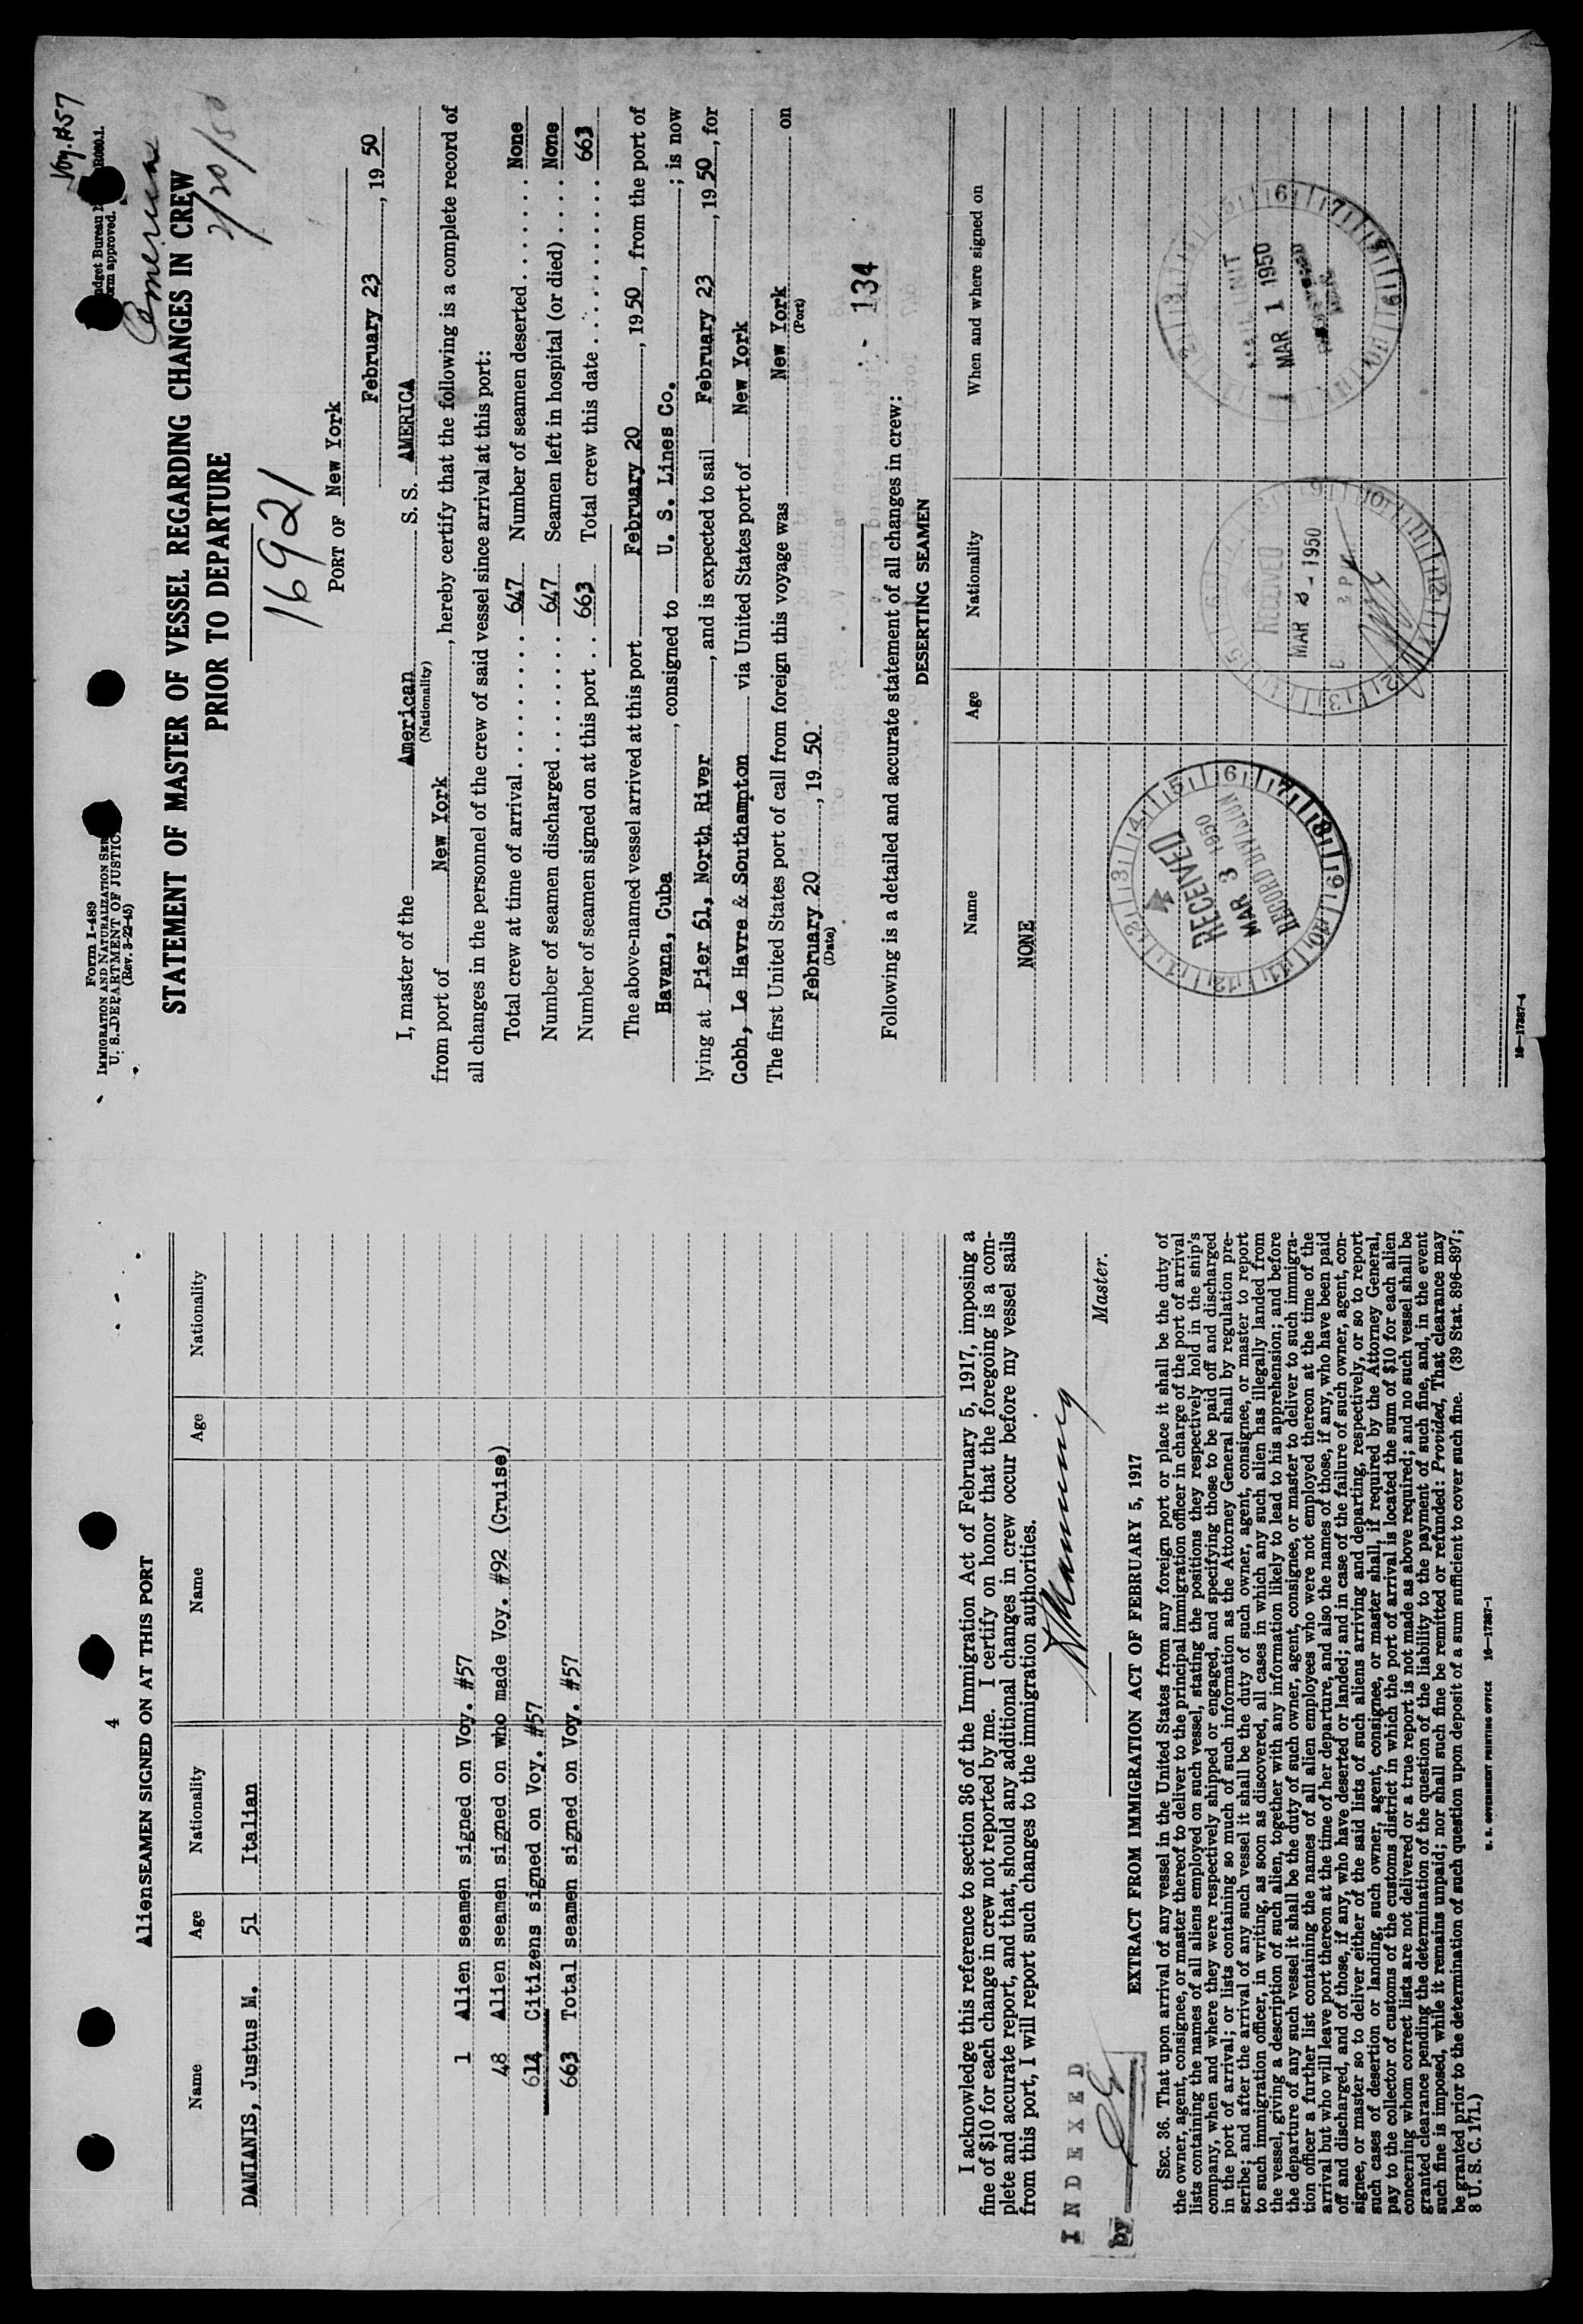 Voy.#57
Form I-489
IMMIGRATION AND NATURALIZATION
U. S. DEPARTMENT OF JUSTICE
(Rev. 3-22-45)
Budget Bureau
Form approved.
America
2/20/50
STATEMENT OF MASTER OF VESSEL REGARDING CHANGES IN CREW
PRIOR TO DEPARTURE
16921
PORT OF New York
February 23, 19 50
I, master of the American S. S. AMERICA
(Nationality)
from port of New York, hereby certify that the following is a complete record of
all changes in the personnel of the crew of said vessel since arrival at this port:
Total crew at time of arrival 647 Number of seamen deserted None
Number of seamen discharged 647 Seamen left in hospital (or died) None
Number of seamen signed on at this port 663 Total crew this date 663
The above-named vessel arrived at this port February 20, 19 50, from the port of
Havana, Cuba, consigned to U. S. Lines Co.; is now
lying at Pier 61, North River, and is expected to sail February 23, 19 50, for
Cobh, Le Havre & Southampton via United States port of New York
The first United States port of call from foreign this voyage was New York on
(Port)
February 20, 19 50.
(Date)
134
Following is a detailed and accurate statement of all changes in crew:
DESERTING SEAMEN
Name Age Nationality When and where signed on
NONE
RECEIVED
MAR 3 1950
RECORD DIVISION
RECEIVED
MAR 3 - 1950
MAIL UNIT
MAR 1 1950
16—17387-4
4
Alien SEAMEN SIGNED ON AT THIS PORT
Name Age Nationality Name Age Nationality
DAMIANIS, Justus M. 51 Italian
1 Alien seamen signed on Voy. #57
48 Alien seamen signed on who made Voy. #92 (Cruise)
614 Citizens signed on Voy. #57
663 Total seamen signed on Voy. #57
I acknowledge this reference to section 36 of the Immigration Act of February 5, 1917, imposing a
fine of $10 for each change in crew not reported by me. I certify on honor that the foregoing is a com-
plete and accurate report, and that, should any additional changes in crew occur before my vessel sails
from this port, I will report such changes to the immigration authorities.
Manning
Master.
INDEXED
by
EXTRACT FROM IMMIGRATION ACT OF FEBRUARY 5, 1917
SEC. 36. That upon arrival of any vessel in the United States from any foreign port or place it shall be the duty of
the owner, agent, consignee, or master thereof to deliver to the principal immigration officer in charge of the port of arrival
lists containing the names of all aliens employed on such vessel, stating the positions they respectively hold in the ship's
company, when and where they were respectively shipped or engaged, and specifying those to be paid off and discharged
in the port of arrival; or lists containing so much of such information as the Attorney General shall by regulation pre-
scribe; and after the arrival of any such vessel it shall be the duty of such owner, agent, consignee, or master to report
to such immigration officer, in writing, as soon as discovered, all cases in which any such alien has illegally landed from
the vessel, giving a description of such alien, together with any information likely to lead to his apprehension; and before
the departure of any such vessel it shall be the duty of such owner, agent, consignee, or master to deliver to such immigra-
tion officer a further list containing the names of all alien employees who were not employed thereon at the time of the
arrival but who will leave port thereon at the time of her departure, and also the names of those, if any, who have been paid
off and discharged, and of those, if any, who have deserted or landed; and in case of the failure of such owner, agent, con-
signee, or master so to deliver either of the said lists of such aliens arriving and departing, respectively, or so to report
such cases of desertion or landing, such owner, agent, consignee, or master shall, if required by the Attorney General,
pay to the collector of customs of the customs district in which the port of arrival is located the sum of $10 for each alien
concerning whom correct lists are not delivered or a true report is not made as above required; and no such vessel shall be
granted clearance pending the determination of the question of the liability to the payment of such fine, and, in the event
such fine is imposed, while it remains unpaid; nor shall such fine be remitted or refunded: Provided, That clearance may
be granted prior to the determination of such question upon deposit of a sum sufficient to cover such fine. (39 Stat. 896-897;
8 U. S. C. 171.)
U. S. GOVERNMENT PRINTING OFFICE 16—17387-1